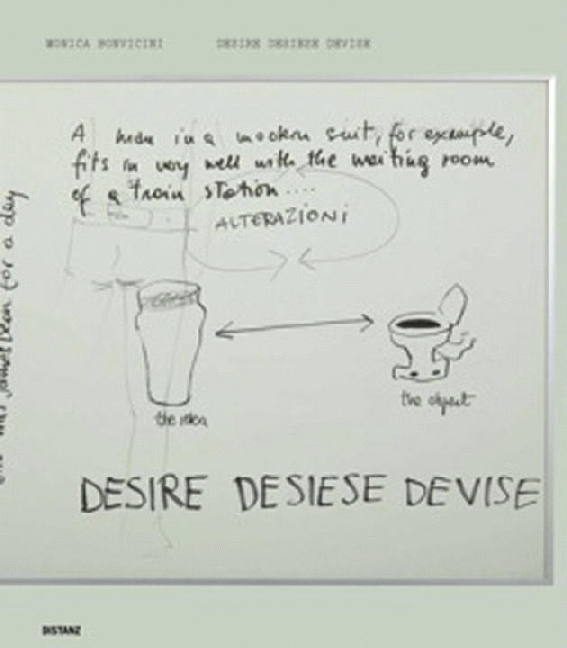 MONICA BONVICINI DESIRE DESIESE DEVISE
A man in a modern suit, for example,
fits in very well with the waiting room
of a train station ....
ALTERAZIONI
for a day
the idea
the object
DESIRE DESIESE DEVISE
DISTANZ